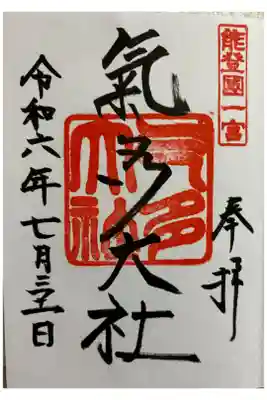 能登國一宮
奉拝
氣多大社
氣多大社
令和六年七月三十一日